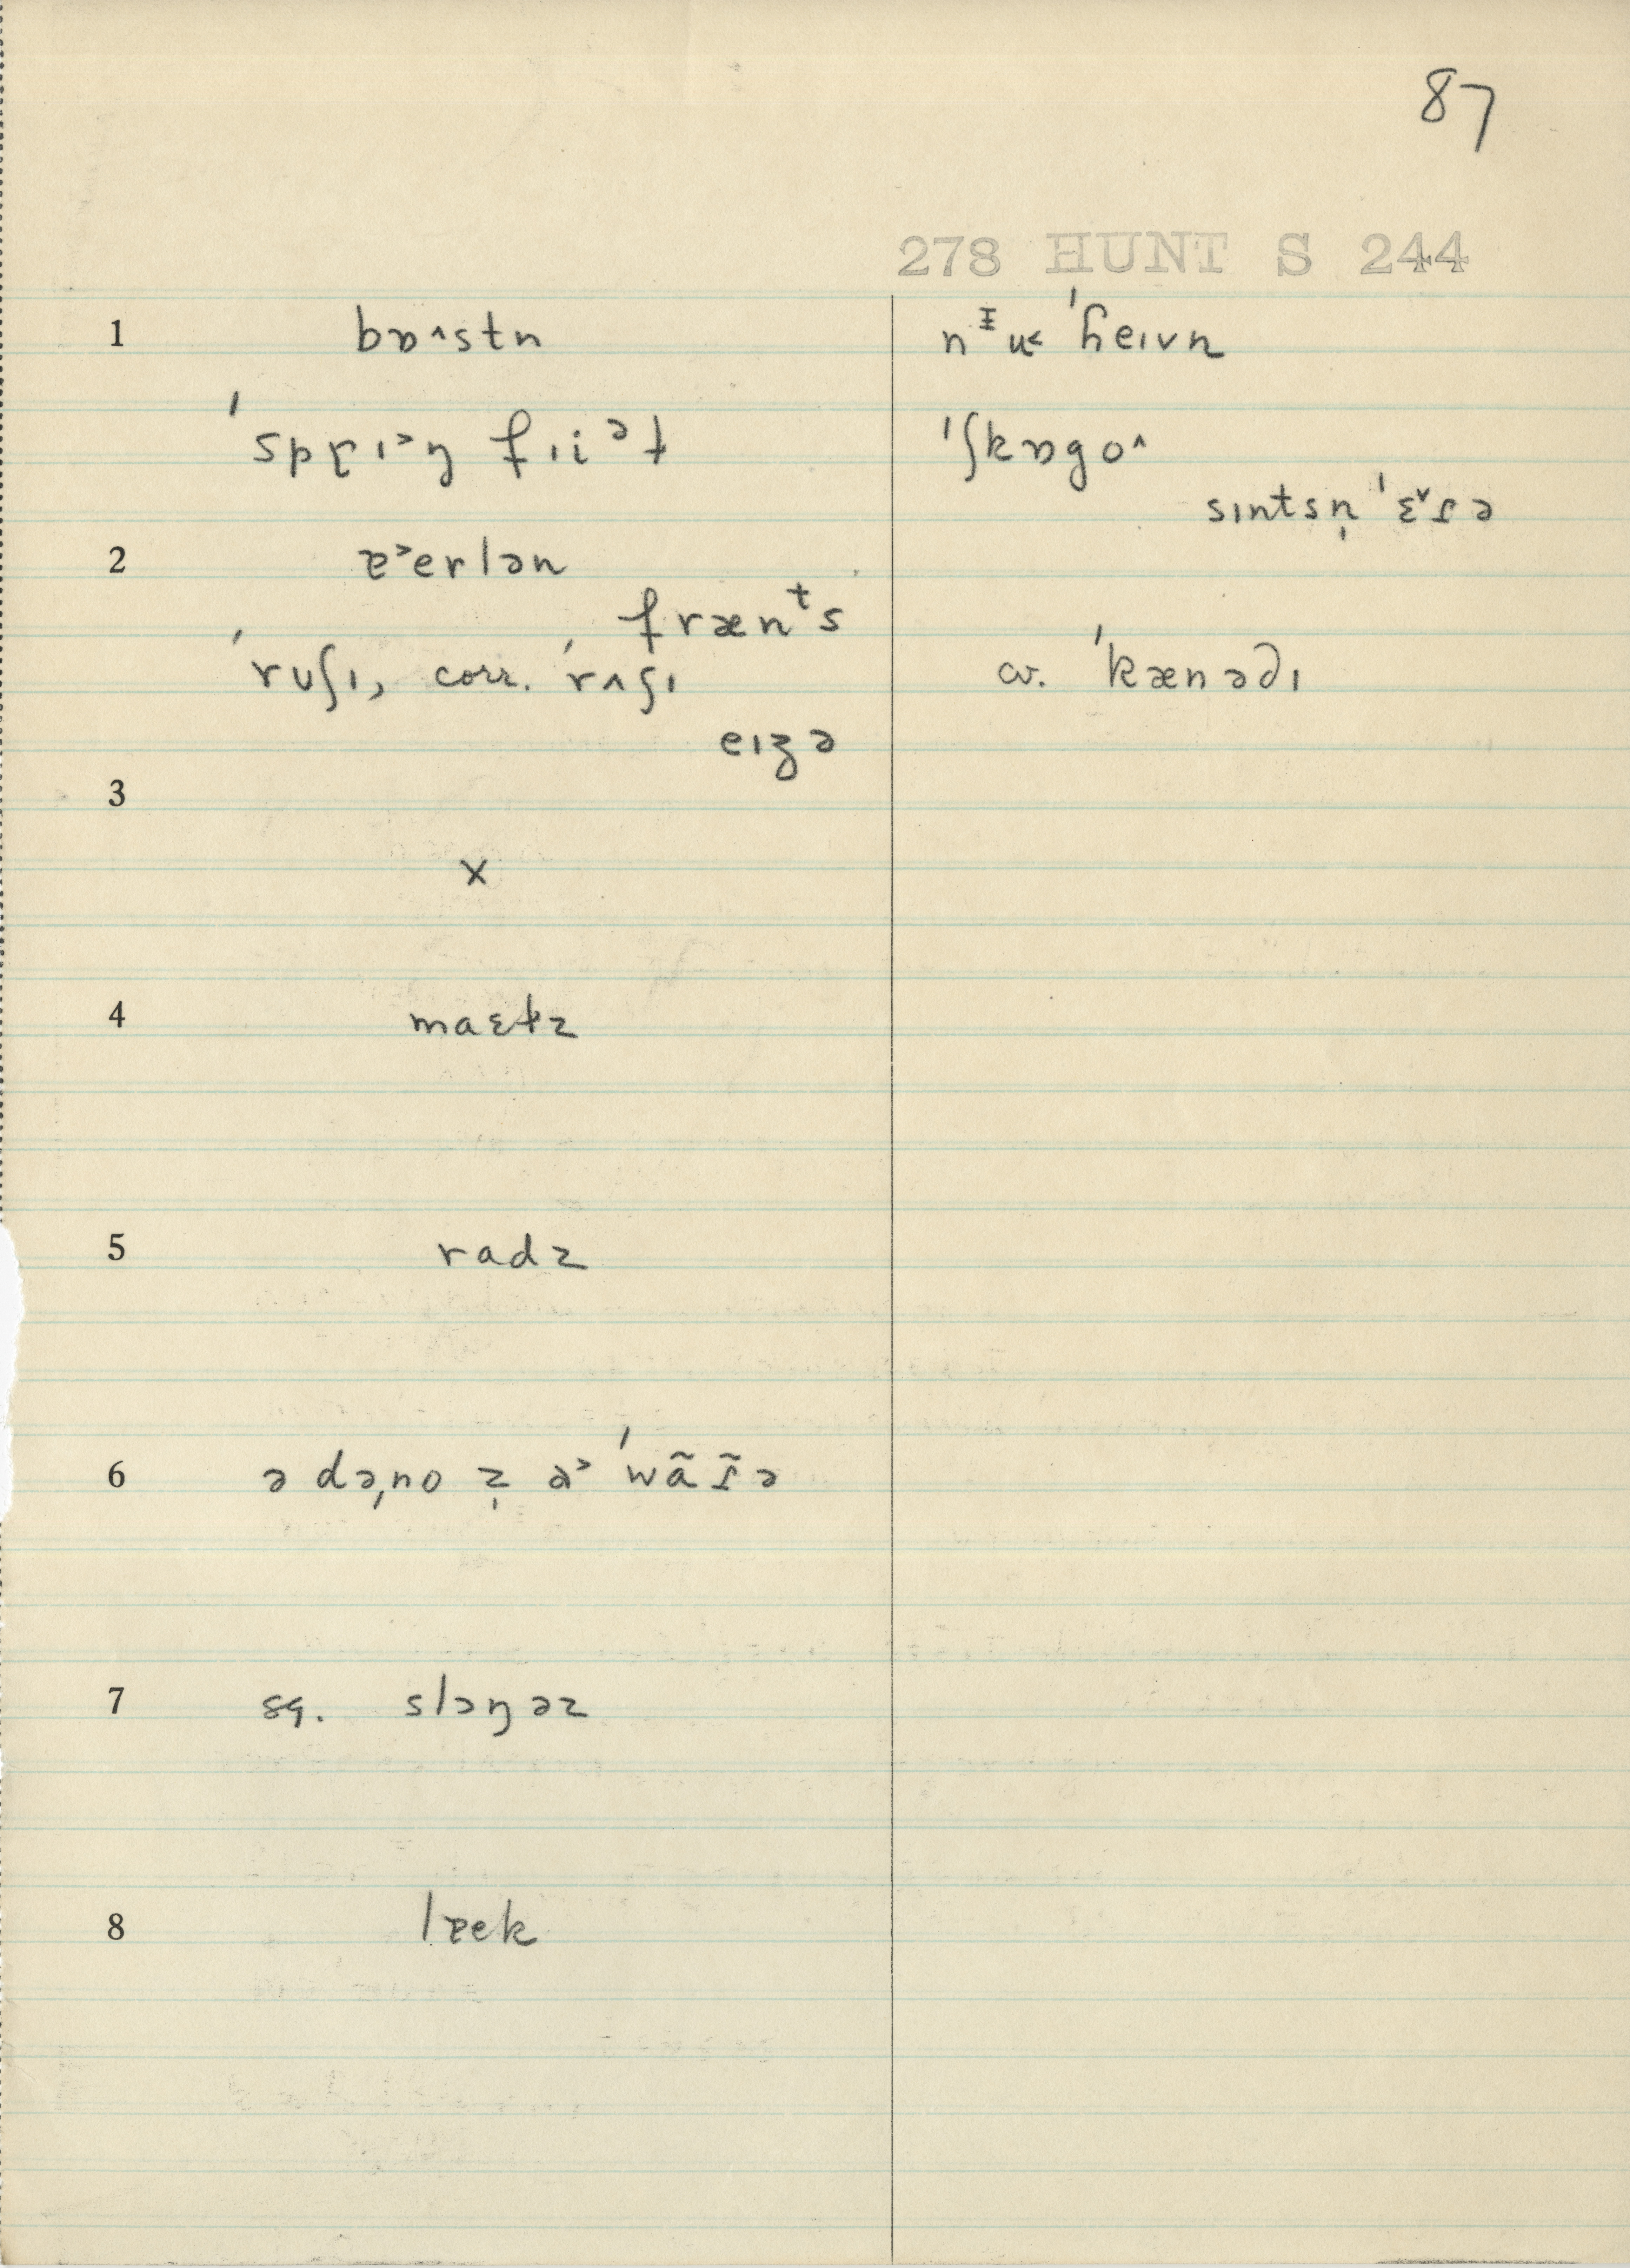 87
278 HUNT S 244
1 bɒ^stn nᶤu˂ ˈɦeɪvn
ˈsprɪ˃ŋ fɪiᵊɫ ˈʃkɒgo^
sɪntsn̩ ˈɛ˅ɾə
2 ɐ˃erlən
frænᵗs
ˈruʃɪ, corr. ˈrʌʃɪ cv. ˈkænədɪ
eɪʒə
3
x
4 maɛɫz
5 radz
6 ə də̩no z̩ ə˃ ˈwãɾ̃ə
7 sq. slɔŋəz
8 lɐek